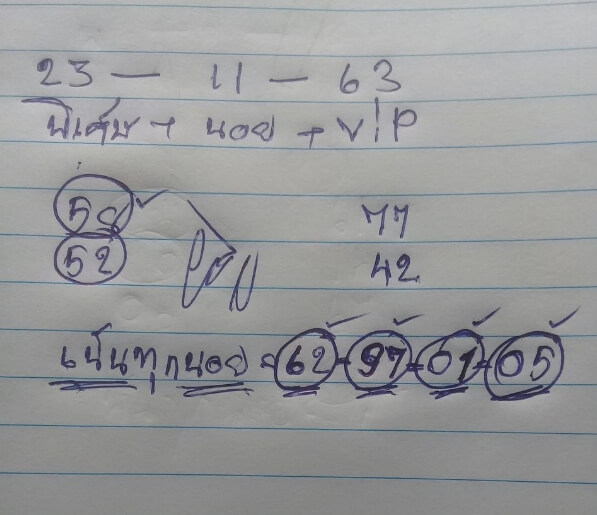 23 - 11 - 63
พิเศษ + นอย + VIP
58 77
52 42
เน้นทุกนอย = 62-97-01-05